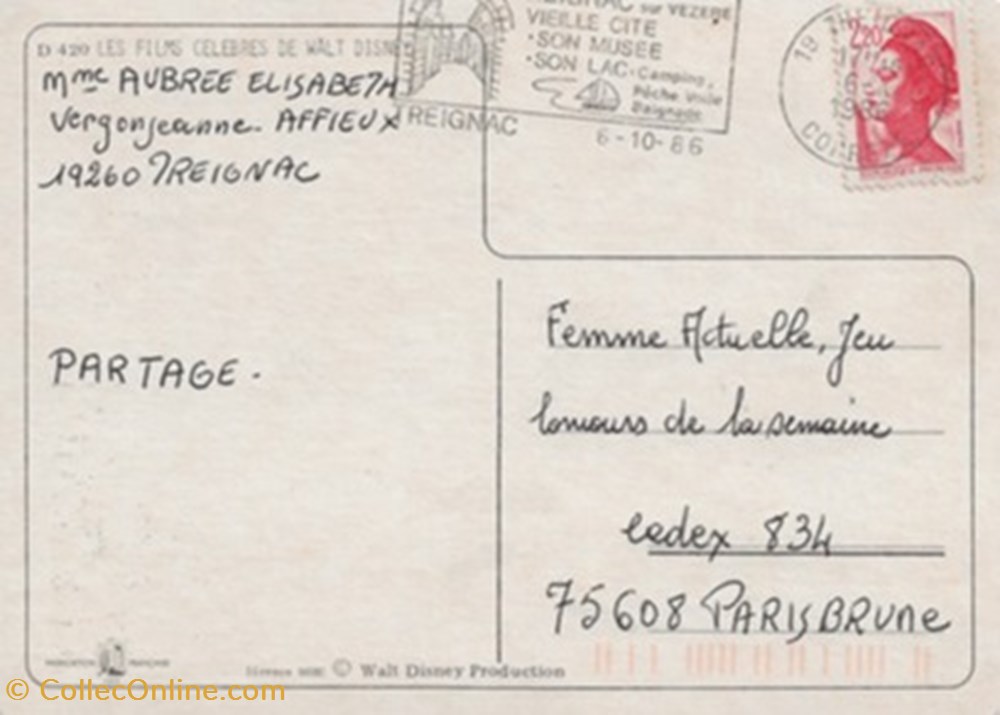 D 420 LES FILMS CELEBRES DE WALT DISNEY
Mme AUBREE ELISABETH
Vergonjeanne - AFFIEUX
19260 TREIGNAC
TREIGNAC sur VEZERE
VIEILLE CITE
•SON MUSEE
•SON LAC - Camping,
Pêche Voile
Baignade
TREIGNAC
6-10-86
19
1986
CORREZE
2,20
PARTAGE.
Femme Actuelle, Jeu
Concours de la semaine
Cedex 834
75608 PARIS BRUNE
FRANÇAISE
© Walt Disney Production
© CollecOnline.com